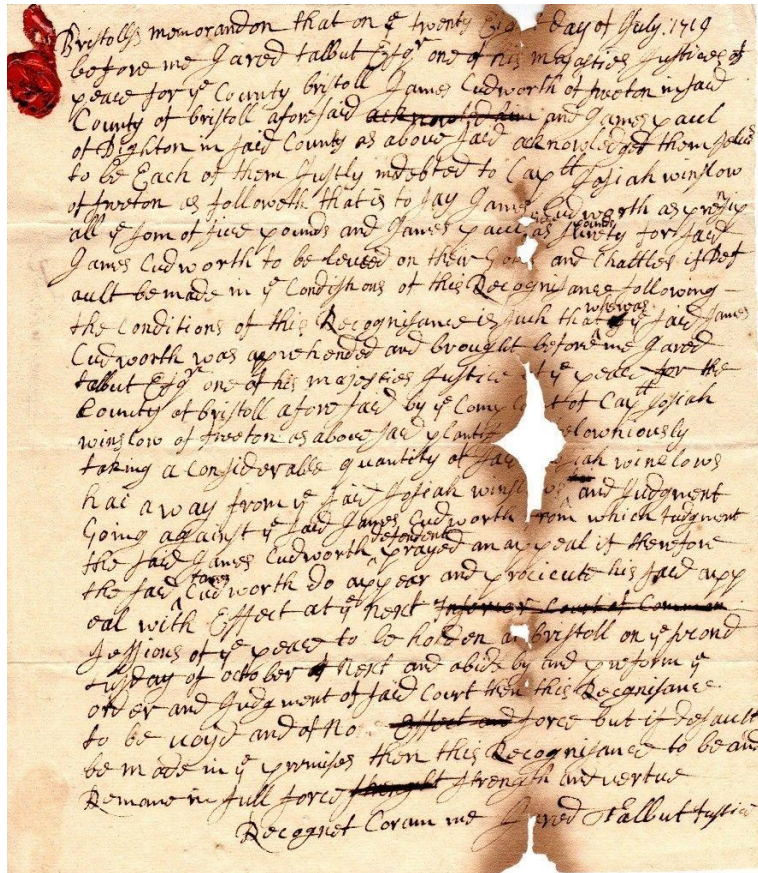 Bristoll ss memorandon that on ye twenty Eight day of July 1719
before me Jared talbut Esqr one of his majesties Justices of
peace for ye County bristoll James Cudworth of freton in said
County of bristoll aforesaid acknowled him and James paul
of Dighton in said County as above said acknowledged them selves
to be Each of them Justly indebted to Captt Josiah winslow
of freton as followeth that is to say James Cudworth as prinsip
all ye som of five pounds and James paul as surety for said
James Cudworth to be leveed on their Goods and Chattles if Def
ault be made in ye Condistions of this Recognisance following
the conditions of this Recognisance is such that whereas ye said James
Cudworth was apprehended and brought before me Jared
talbut Esqr one of his majesties Justice of ye peace for the
County of bristoll aforesaid by ye Comp of Captt Josiah
winslow of freton as above said plantif felowniously
taking a Considerable quantity of said Josiah winslows
hai away from ye said Josiah winslow and Judgment
Going against ye said James Cudworth from which Judgment
the said James Cudworth defendent prayed an appeal if therefore
the said James Cudworth do appear and prosicute his said app
eal with Effect at ye next Inferior Court of Common
sessions of ye peace to be holden at bristoll on ye second
tusday of october next and abide by and preform ye
order and Judgment of said Court then this Recognisance
to be voyd and of No Effect and force but if default
be made in ye premises then this Recognisance to be and
Remane in full force strenght strength and vertue
Recognet Coram me Jared Talbut Justice